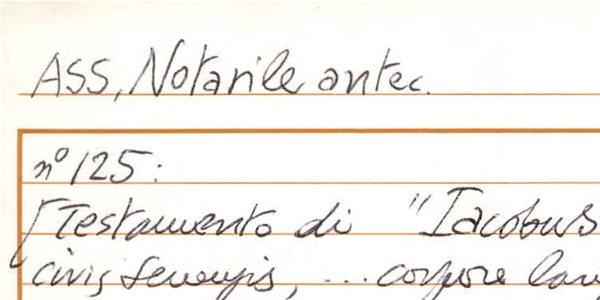 ASS, Notarile antec.
n° 125:
[Testamento di "Iacobus
civis senensis, ... corpore lan